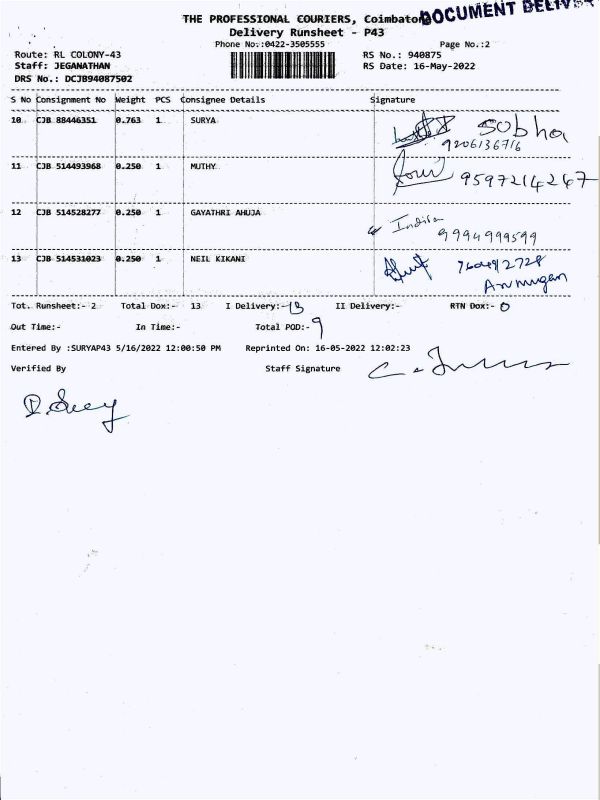 THE PROFESSIONAL COURIERS, Coimbator
DOCUMENT DELIV
Delivery Runsheet - P43
Phone No.:0422-3505555 Page No.:2
Route: RL COLONY-43 RS No.: 940875
Staff: JEGANATHAN RS Date: 16-May-2022
DRS No.: DCJB94087502
S No Consignment No Weight PCS Consignee Details Signature
10 CJB 88446351 0.763 1 SURYA
Sobha
9206136716
11 CJB 514493968 0.250 1 MUTHY
9597214247
12 CJB 514528277 0.250 1 GAYATHRI AHUJA
9994999599
13 CJB 514531023 0.250 1 NEIL KIKANI
Arumugam
Tot. Runsheet:- 2 Total Dox:- 13 I Delivery:-13 II Delivery:- RTN Dox:- 0
Out Time:- In Time:- Total POD:- 9
Entered By :SURYAP43 5/16/2022 12:00:50 PM Reprinted On: 16-05-2022 12:02:23
Verified By Staff Signature